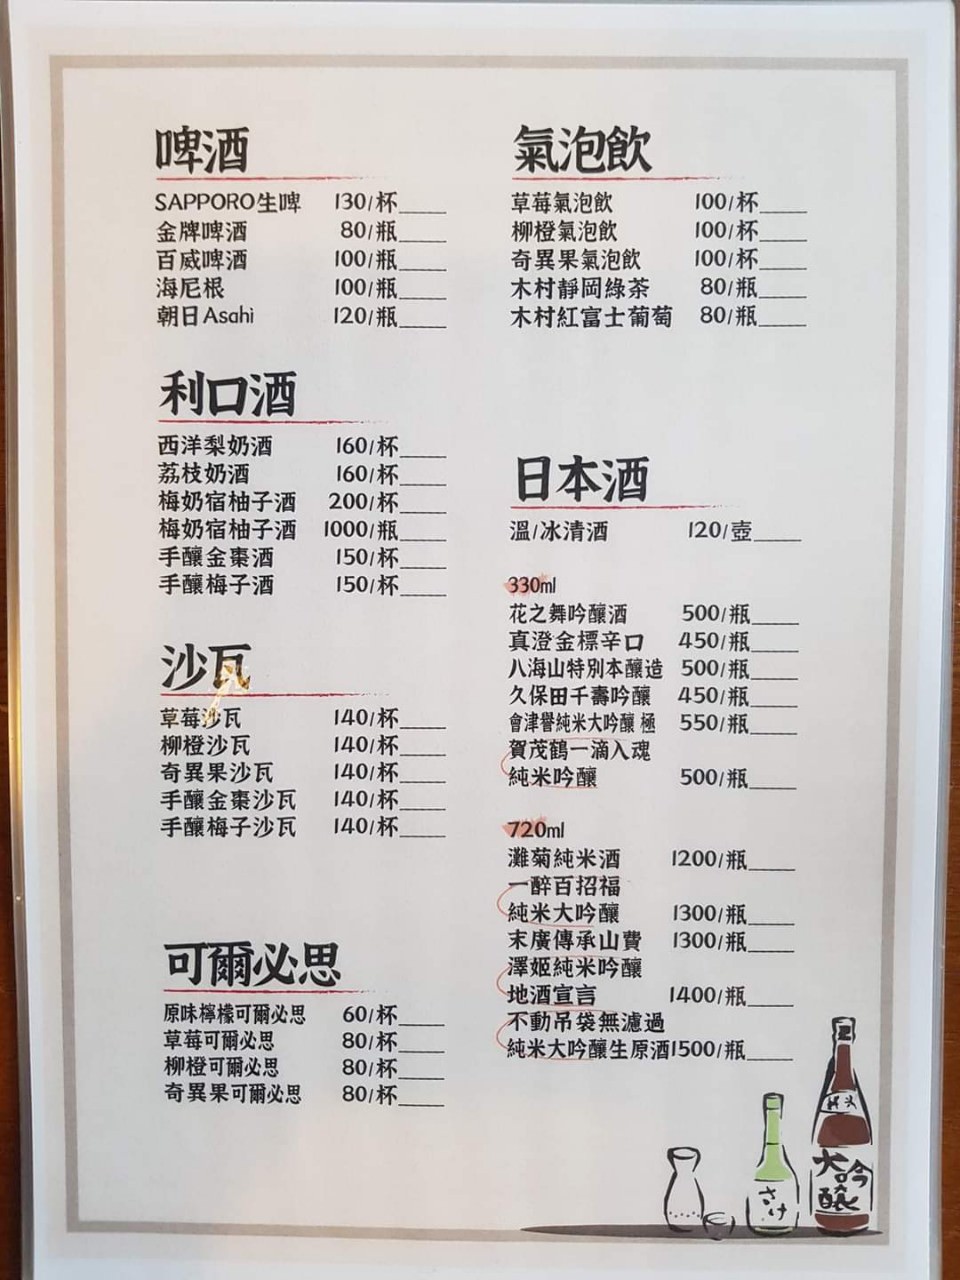 啤酒
SAPPORO生啤 130/杯____
金牌啤酒 80/瓶____
百威啤酒 100/瓶____
海尼根 100/瓶____
朝日Asahi 120/瓶____
利口酒
西洋梨奶酒 160/杯____
荔枝奶酒 160/杯____
梅奶宿柚子酒 200/杯____
梅奶宿柚子酒 1000/瓶____
手釀金棗酒 150/杯____
手釀梅子酒 150/杯____
沙瓦
草莓沙瓦 140/杯____
柳橙沙瓦 140/杯____
奇異果沙瓦 140/杯____
手釀金棗沙瓦 140/杯____
手釀梅子沙瓦 140/杯____
可爾必思
原味檸檬可爾必思 60/杯____
草莓可爾必思 80/杯____
柳橙可爾必思 80/杯____
奇異果可爾必思 80/杯____
氣泡飲
草莓氣泡飲 100/杯____
柳橙氣泡飲 100/杯____
奇異果氣泡飲 100/杯____
木村靜岡綠茶 80/瓶____
木村紅富士葡萄 80/瓶____
日本酒
溫/冰清酒 120/壺____
330ml
花之舞吟釀酒 500/瓶____
真澄金標辛口 450/瓶____
八海山特別本釀造 500/瓶____
久保田千壽吟釀 450/瓶____
會津譽純米大吟釀 極 550/瓶____
賀茂鶴一滴入魂
純米吟釀 500/瓶____
720ml
灘菊純米酒 1200/瓶____
一醉百招福
純米大吟釀 1300/瓶____
末廣傳承山費 1300/瓶____
澤姬純米吟釀
地酒宣言 1400/瓶____
不動吊袋無濾過
純米大吟釀生原酒1500/瓶____
純米
大吟釀
さけ